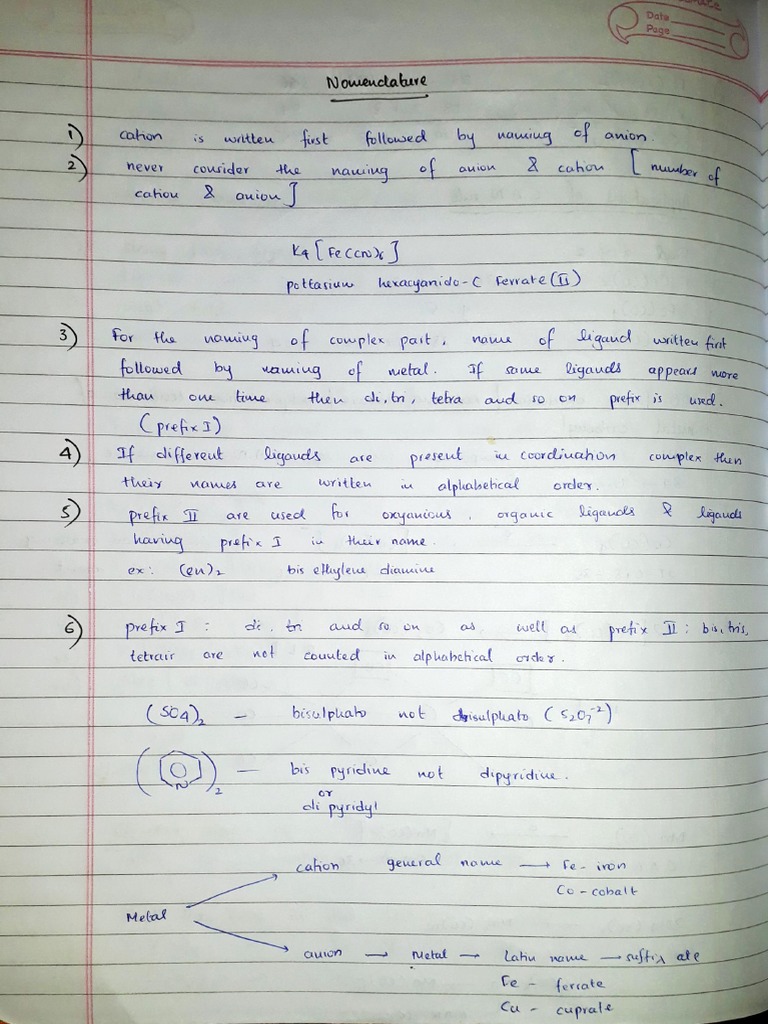 Date
Page
Nomenclature
1) cation is written first followed by naming of anion.
2) never consider the naming of anion & cation [number of
cation & anion]
K4[Fe(CN)6]
pottasium hexacyanido-C Ferrate(II)
3) For the naming of complex part, name of ligand written first
followed by naming of metal. If same ligands appears more
than one time then di, tri, tetra and so on prefix is used.
(prefix I)
4) If different ligands are present in coordination complex then
their names are written in alphabetical order.
5) prefix II are used for oxyanious, organic ligands & ligands
having prefix I in their name.
ex: (en)2 bis ethylene diamine
6) prefix I: di, tri and so on as well as prefix II: bis, tris,
tetrair are not counted in alphabetical order.
(SO4)2 — bisulphato not disulphato (S2O7-2)
( N )2 — bis pyridine not dipyridine.
or
di pyridyl
cation general name → Fe - iron
Co - cobalt
Metal
anion → Metal → Latin name → suffix ate
Fe - ferrate
Cu - cuprate